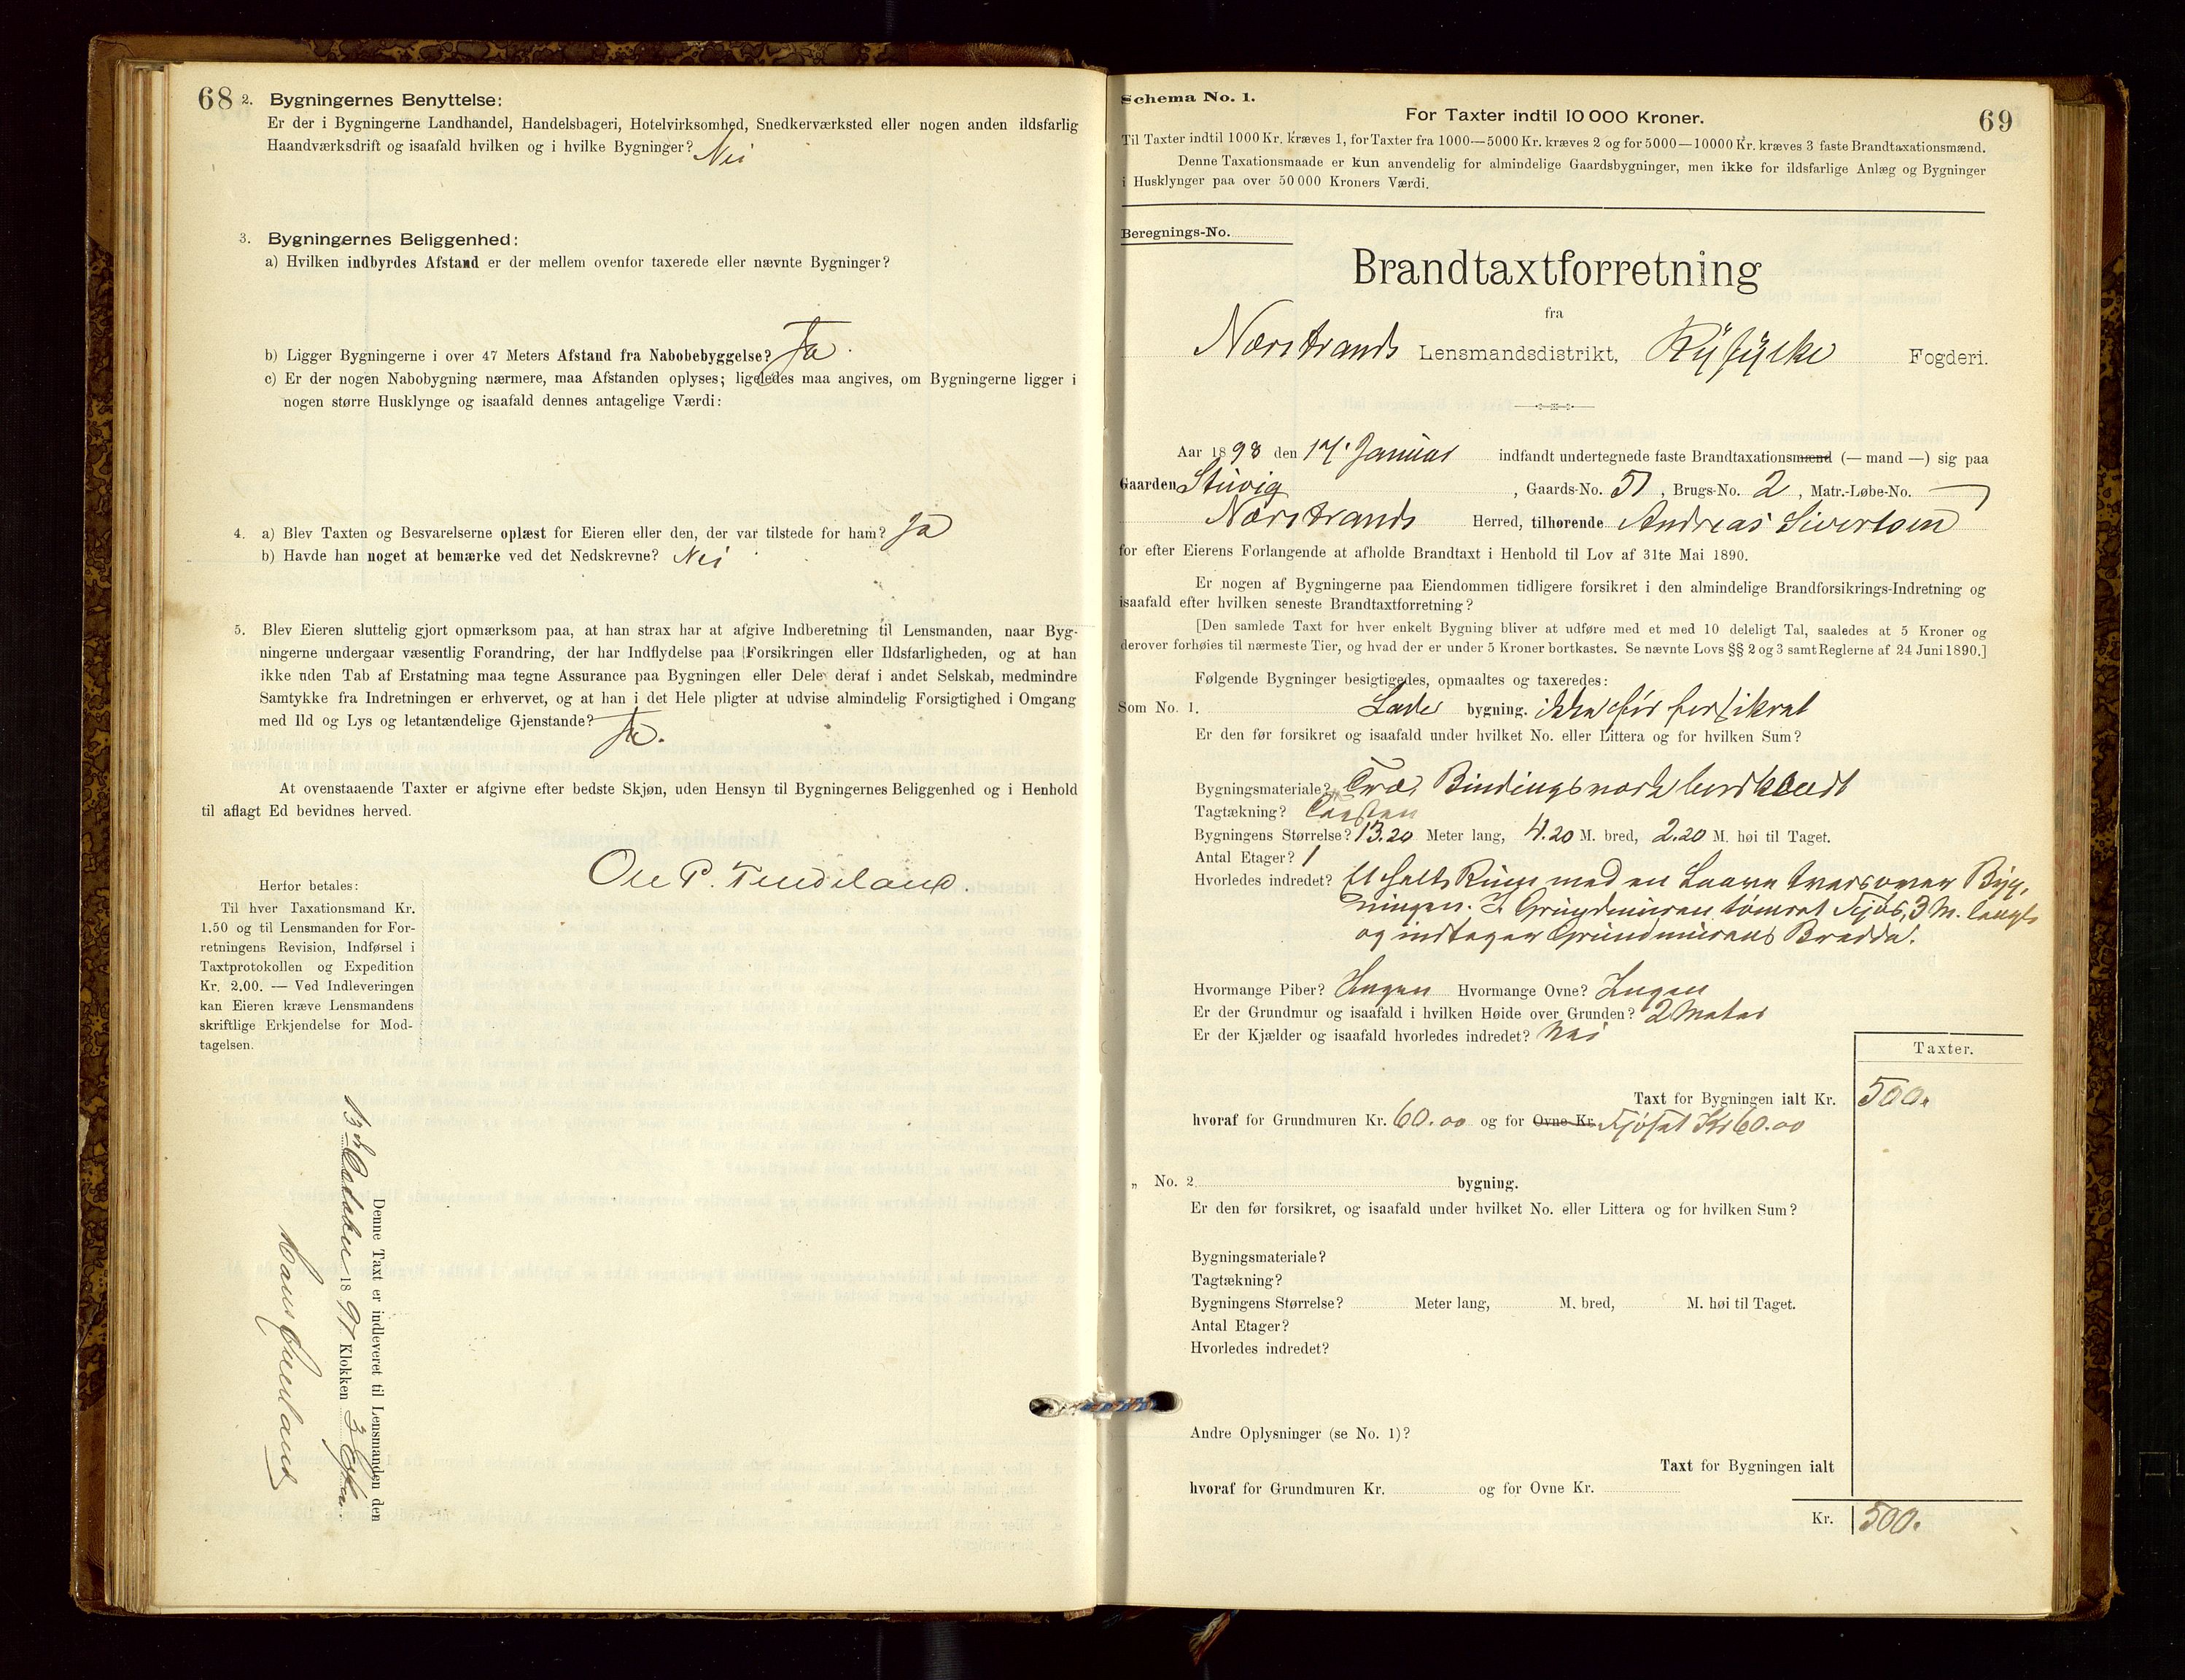 68 2. Bygningernes Benyttelse:
Er der i Bygningerne Landhandel, Handelsbageri, Hotelvirksomhed, Snedkerværksted eller nogen anden ildsfarlig
Haandværksdrift og isaafald hvilken og i hvilke Bygninger? Nei
3. Bygningernes Beliggenhed:
a) Hvilken indbyrdes Afstand er der mellem ovenfor taxerede eller nævnte Bygninger?
b) Ligger Bygningerne i over 47 Meters Afstand fra Nabobebyggelse? Ja
c) Er der nogen Nabobygning nærmere, maa Afstanden oplyses; ligeledes maa angives, om Bygningerne ligger i
nogen større Husklynge og isaafald dennes antagelige Værdi:
4. a) Blev Taxten og Besvarelserne oplæst for Eieren eller den, der var tilstede for ham? Ja
b) Havde han noget at bemærke ved det Nedskrevne? Nei
5. Blev Eieren sluttelig gjort opmærksom paa, at han strax har at afgive Indberetning til Lensmanden, naar Byg-
ningerne undergaar væsentlig Forandring, der har Indflydelse paa Forsikringen eller Ildsfarligheden, og at han
ikke uden Tab af Erstatning maa tegne Assurance paa Bygningen eller Dele deraf i andet Selskab, medmindre
Samtykke fra Indretningen er erhvervet, og at han i det Hele pligter at udvise almindelig Forsigtighed i Omgang
med Ild og Lys og letantændelige Gjenstande? Ja.
At ovenstaaende Taxter er afgivne efter bedste Skjøn, uden Hensyn til Bygningernes Beliggenhed og i Henhold
til aflagt Ed bevidnes herved.
Ole P. Tendeland.
Herfor betales:
Til hver Taxationsmand Kr.
1.50 og til Lensmanden for For-
retningens Revision, Indførsel i
Taxtprotokollen og Expedition
Kr. 2.00. — Ved Indleveringen
kan Eieren kræve Lensmandens
skriftlige Erkjendelse for Mod-
tagelsen.
Denne Taxt er indleveret til Lensmanden den
13de October 1897 Klokken 3 Efm.
69
Schema No. 1.
For Taxter indtil 10 000 Kroner.
Til Taxter indtil 1000 Kr. kræves 1, for Taxter fra 1000—5000 Kr. kræves 2 og for 5000—10000 Kr. kræves 3 faste Brandtaxationsmænd.
Denne Taxationsmaade er kun anvendelig for almindelige Gaardsbygninger, men ikke for ildsfarlige Anlæg og Bygninger
i Husklynger paa over 50 000 Kroners Værdi.
Beregnings-No.
Brandtaxtforretning
fra
Nærstrands Lensmandsdistrikt, Ryfylke Fogderi.
Aar 1898 den 17. Januar indfandt undertegnede faste Brandtaxationsmænd (— mand —) sig paa
Gaarden Stuvig, Gaards-No. 51, Brugs-No. 2, Matr.-Løbe-No.
Nærstrands Herred, tilhørende Andreas Sivertsen
for efter Eierens Forlangende at afholde Brandtaxt i Henhold til Lov af 31te Mai 1890.
Er nogen af Bygningerne paa Eiendommen tidligere forsikret i den almindelige Brandforsikrings-Indretning og
isaafald efter hvilken seneste Brandtaxtforretning?
[Den samlede Taxt for hver enkelt Bygning bliver at udføre med et med 10 deleligt Tal, saaledes at 5 Kroner og
derover forhøies til nærmeste Tier, og hvad der er under 5 Kroner bortkastes. Se nævnte Lovs §§ 2 og 3 samt Reglerne af 24 Juni 1890.]
Følgende Bygninger besigtigedes, opmaaltes og taxeredes:
Som No. 1. Lade bygning. ikke før forsikret
Er den før forsikret og isaafald under hvilket No. eller Littera og for hvilken Sum?
Bygningsmateriale? Træ, Bindingsværk bordklædt
Tagtækning?
Bygningens Størrelse? 13.20 Meter lang, 4.20 M. bred, 2.20 M. høi til Taget.
Antal Etager? 1
Hvorledes indredet? Et helt Rum med en Laave tvers over Byg,
ningen. I Grundmuren tømret Fjøs, 3 M. langt
og indtager Grundmurens Bredde.
Hvormange Piber? Ingen Hvormange Ovne? Ingen
Er der Grundmur og isaafald i hvilken Høide over Grunden? 2 Meter
Er der Kjælder og isaafald hvorledes indredet? Nei
Taxter.
Taxt for Bygningen ialt Kr. 500.
hvoraf for Grundmuren Kr. 60.00 og for Ovne Kr. Fjøset Kr 60.00
„ No. 2 bygning.
Er den før forsikret, og isaafald under hvilket No. eller Littera og for hvilken Sum?
Bygningsmateriale?
Tagtækning?
Bygningens Størrelse? Meter lang, M. bred, M. høi til Taget.
Antal Etager?
Hvorledes indredet?
Andre Oplysninger (se No. 1)?
Taxt for Bygningen ialt
hvoraf for Grundmuren Kr. og for Ovne Kr.
Kr. 500.